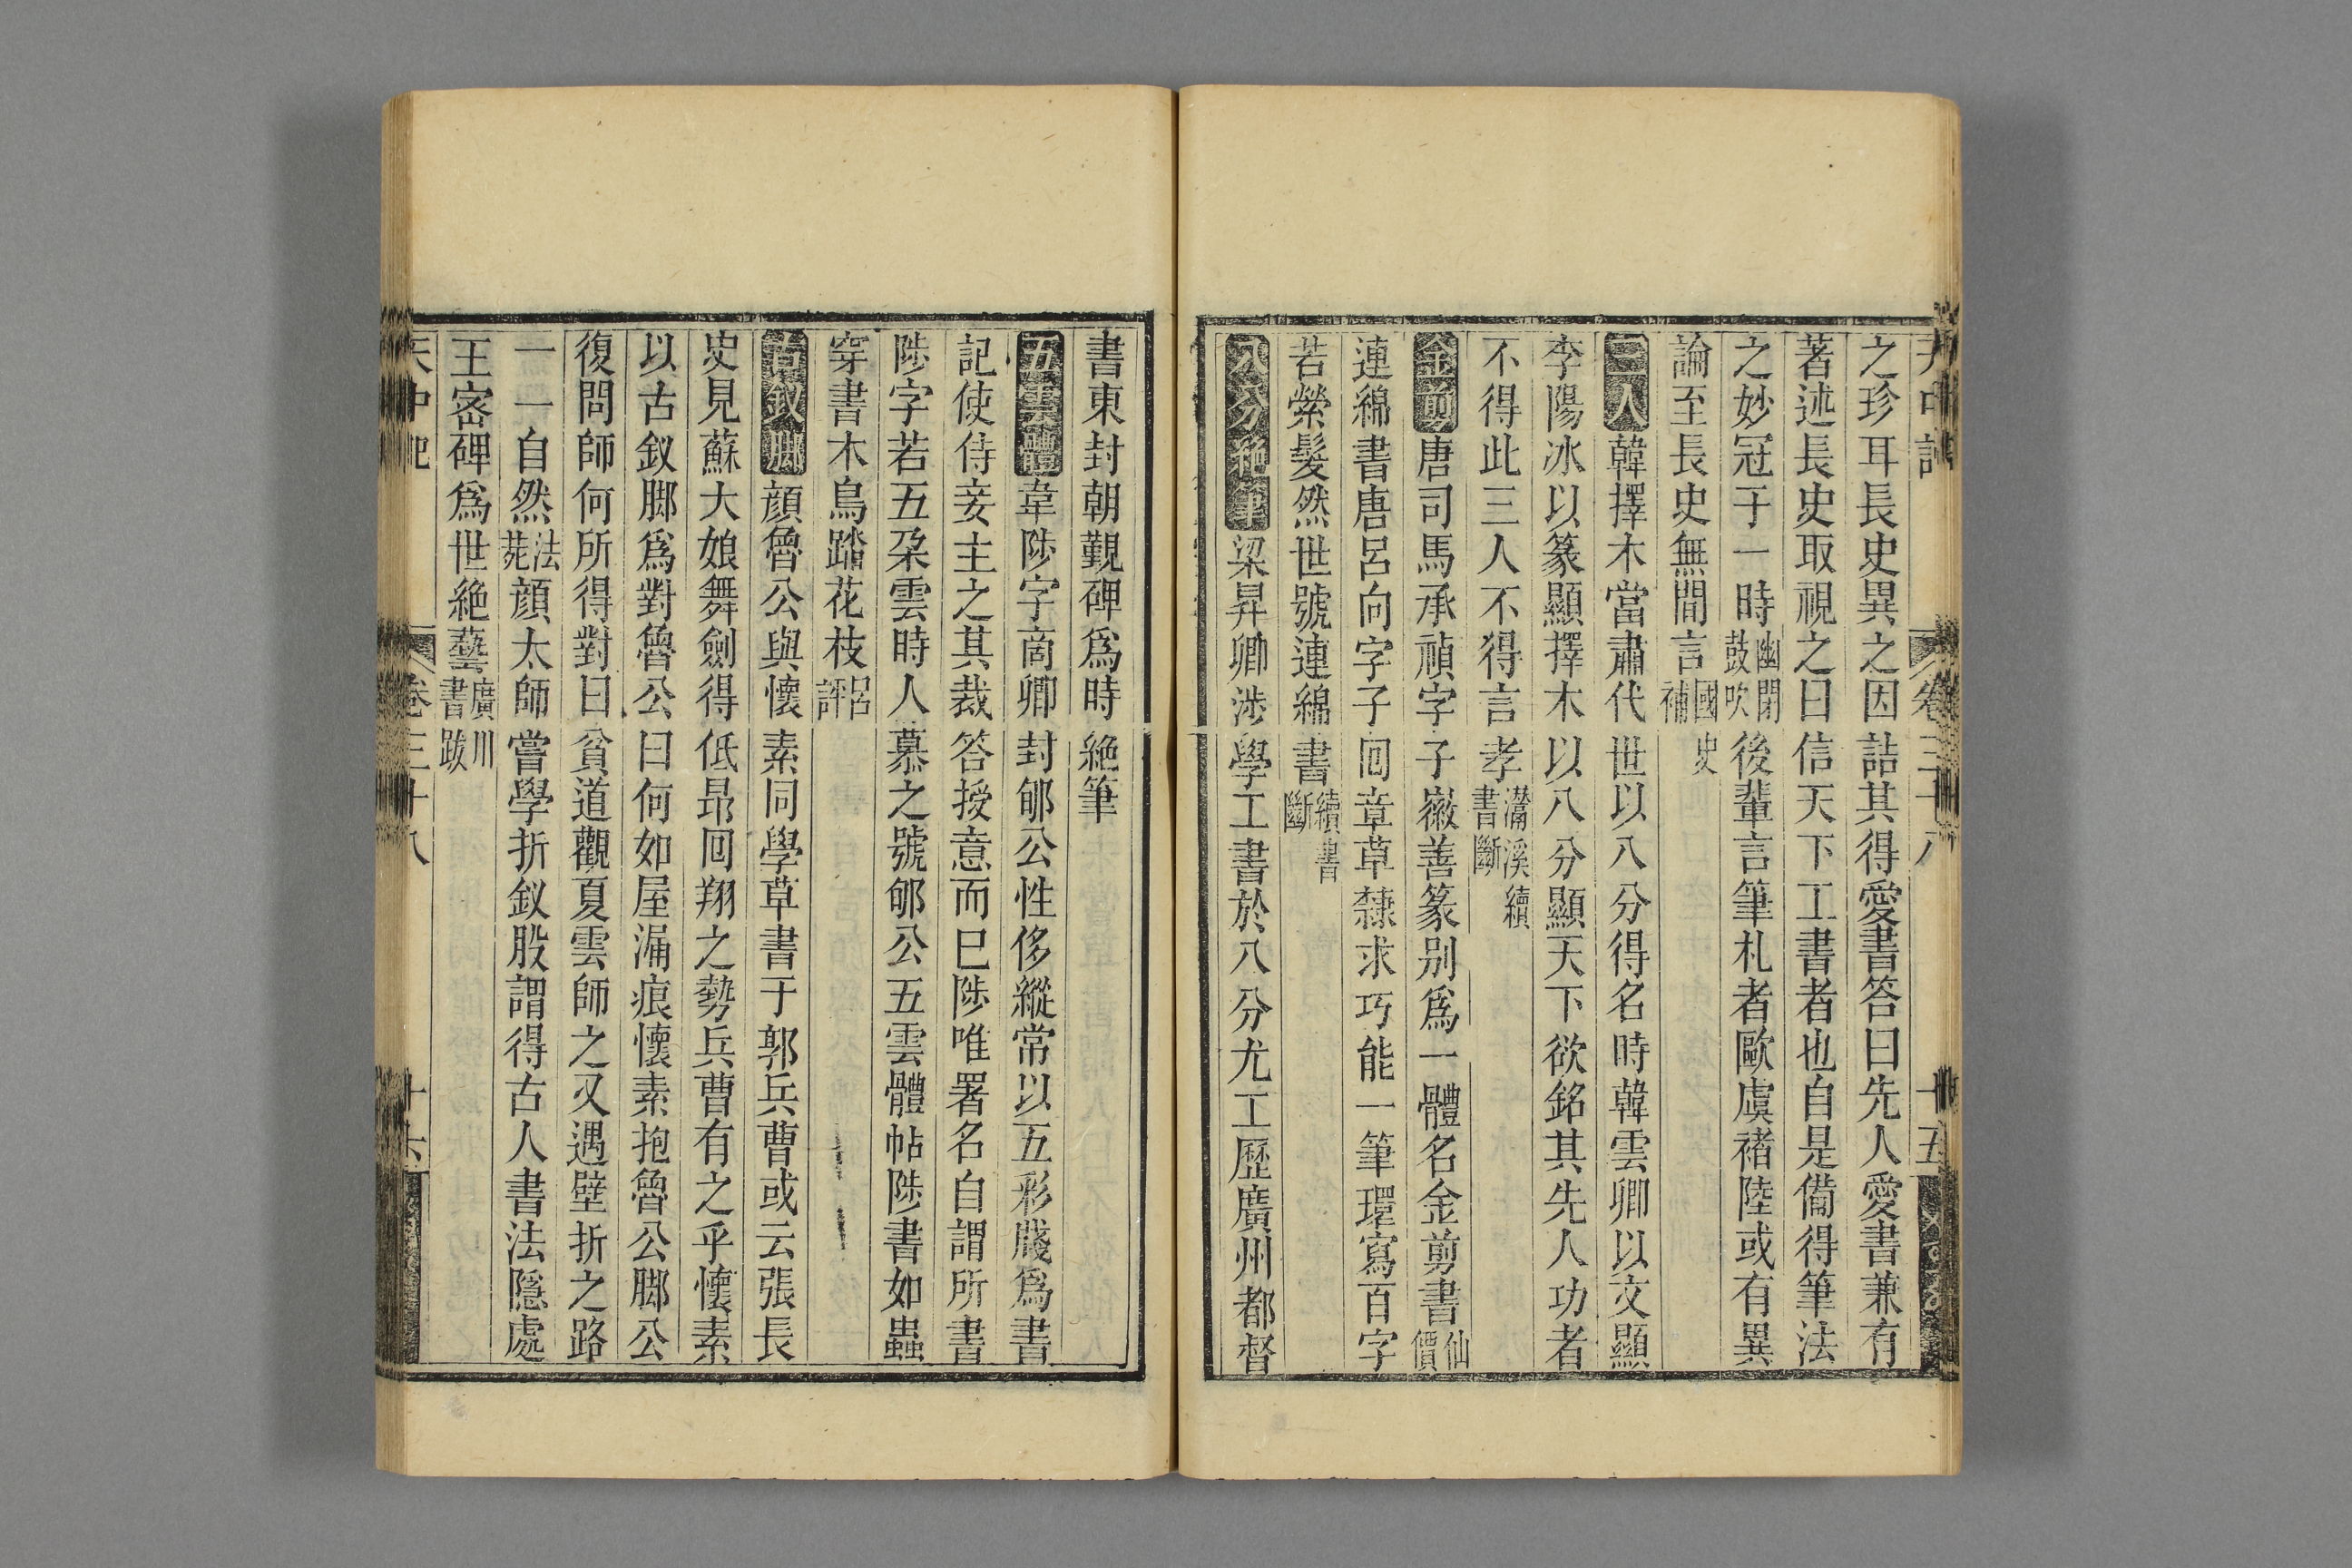 天中記 卷三十八 十五
之珍耳長史異之因詰其得愛書答曰先人愛書兼有
著述長史取視之曰信天下工書者也自是備得筆法
之妙冠于一時幽閒鼓吹後輩言筆札者歐虞褚陸或有異
論至長史無間言國史補
三人韓擇木當肅代世以八分得名時韓雲卿以文顯
李陽冰以篆顯擇木以八分顯天下欲銘其先人功者
不得此三人不得言孝潏溪續書斷
金剪唐司馬承禎字子徽善篆别爲一體名金剪書仙價
連綿書唐呂向字子囘章草隸求巧能一筆環寫百字
若縈髮然世號連綿書續書斷
八分絶筆梁昇卿涉學工書於八分尤工歷廣州都督
書東封朝覲碑爲時絶筆
五雲體韋陟字啇卿封郇公性侈縱常以五彩牋爲書
記使侍妾主之其裁答授意而巳陟唯署名自謂所書
陟字若五朶雲時人慕之號郇公五雲體帖陟書如蟲
穿書木鳥踏花枝呂評
古釵脚顔魯公與懷素同學草書于郭兵曹或云張長
史見蘇大娘舞劍得低昻囘翔之勢兵曹有之乎懷素
以古釵脚爲對魯公曰何如屋漏痕懷素抱魯公脚公
復問師何所得對曰貧道觀夏雲師之又遇壁折之路
一一自然法苑顔太師嘗學折釵股謂得古人書法隱處
王宻碑爲世絶藝廣川書跋
天中記 卷三十八 十六